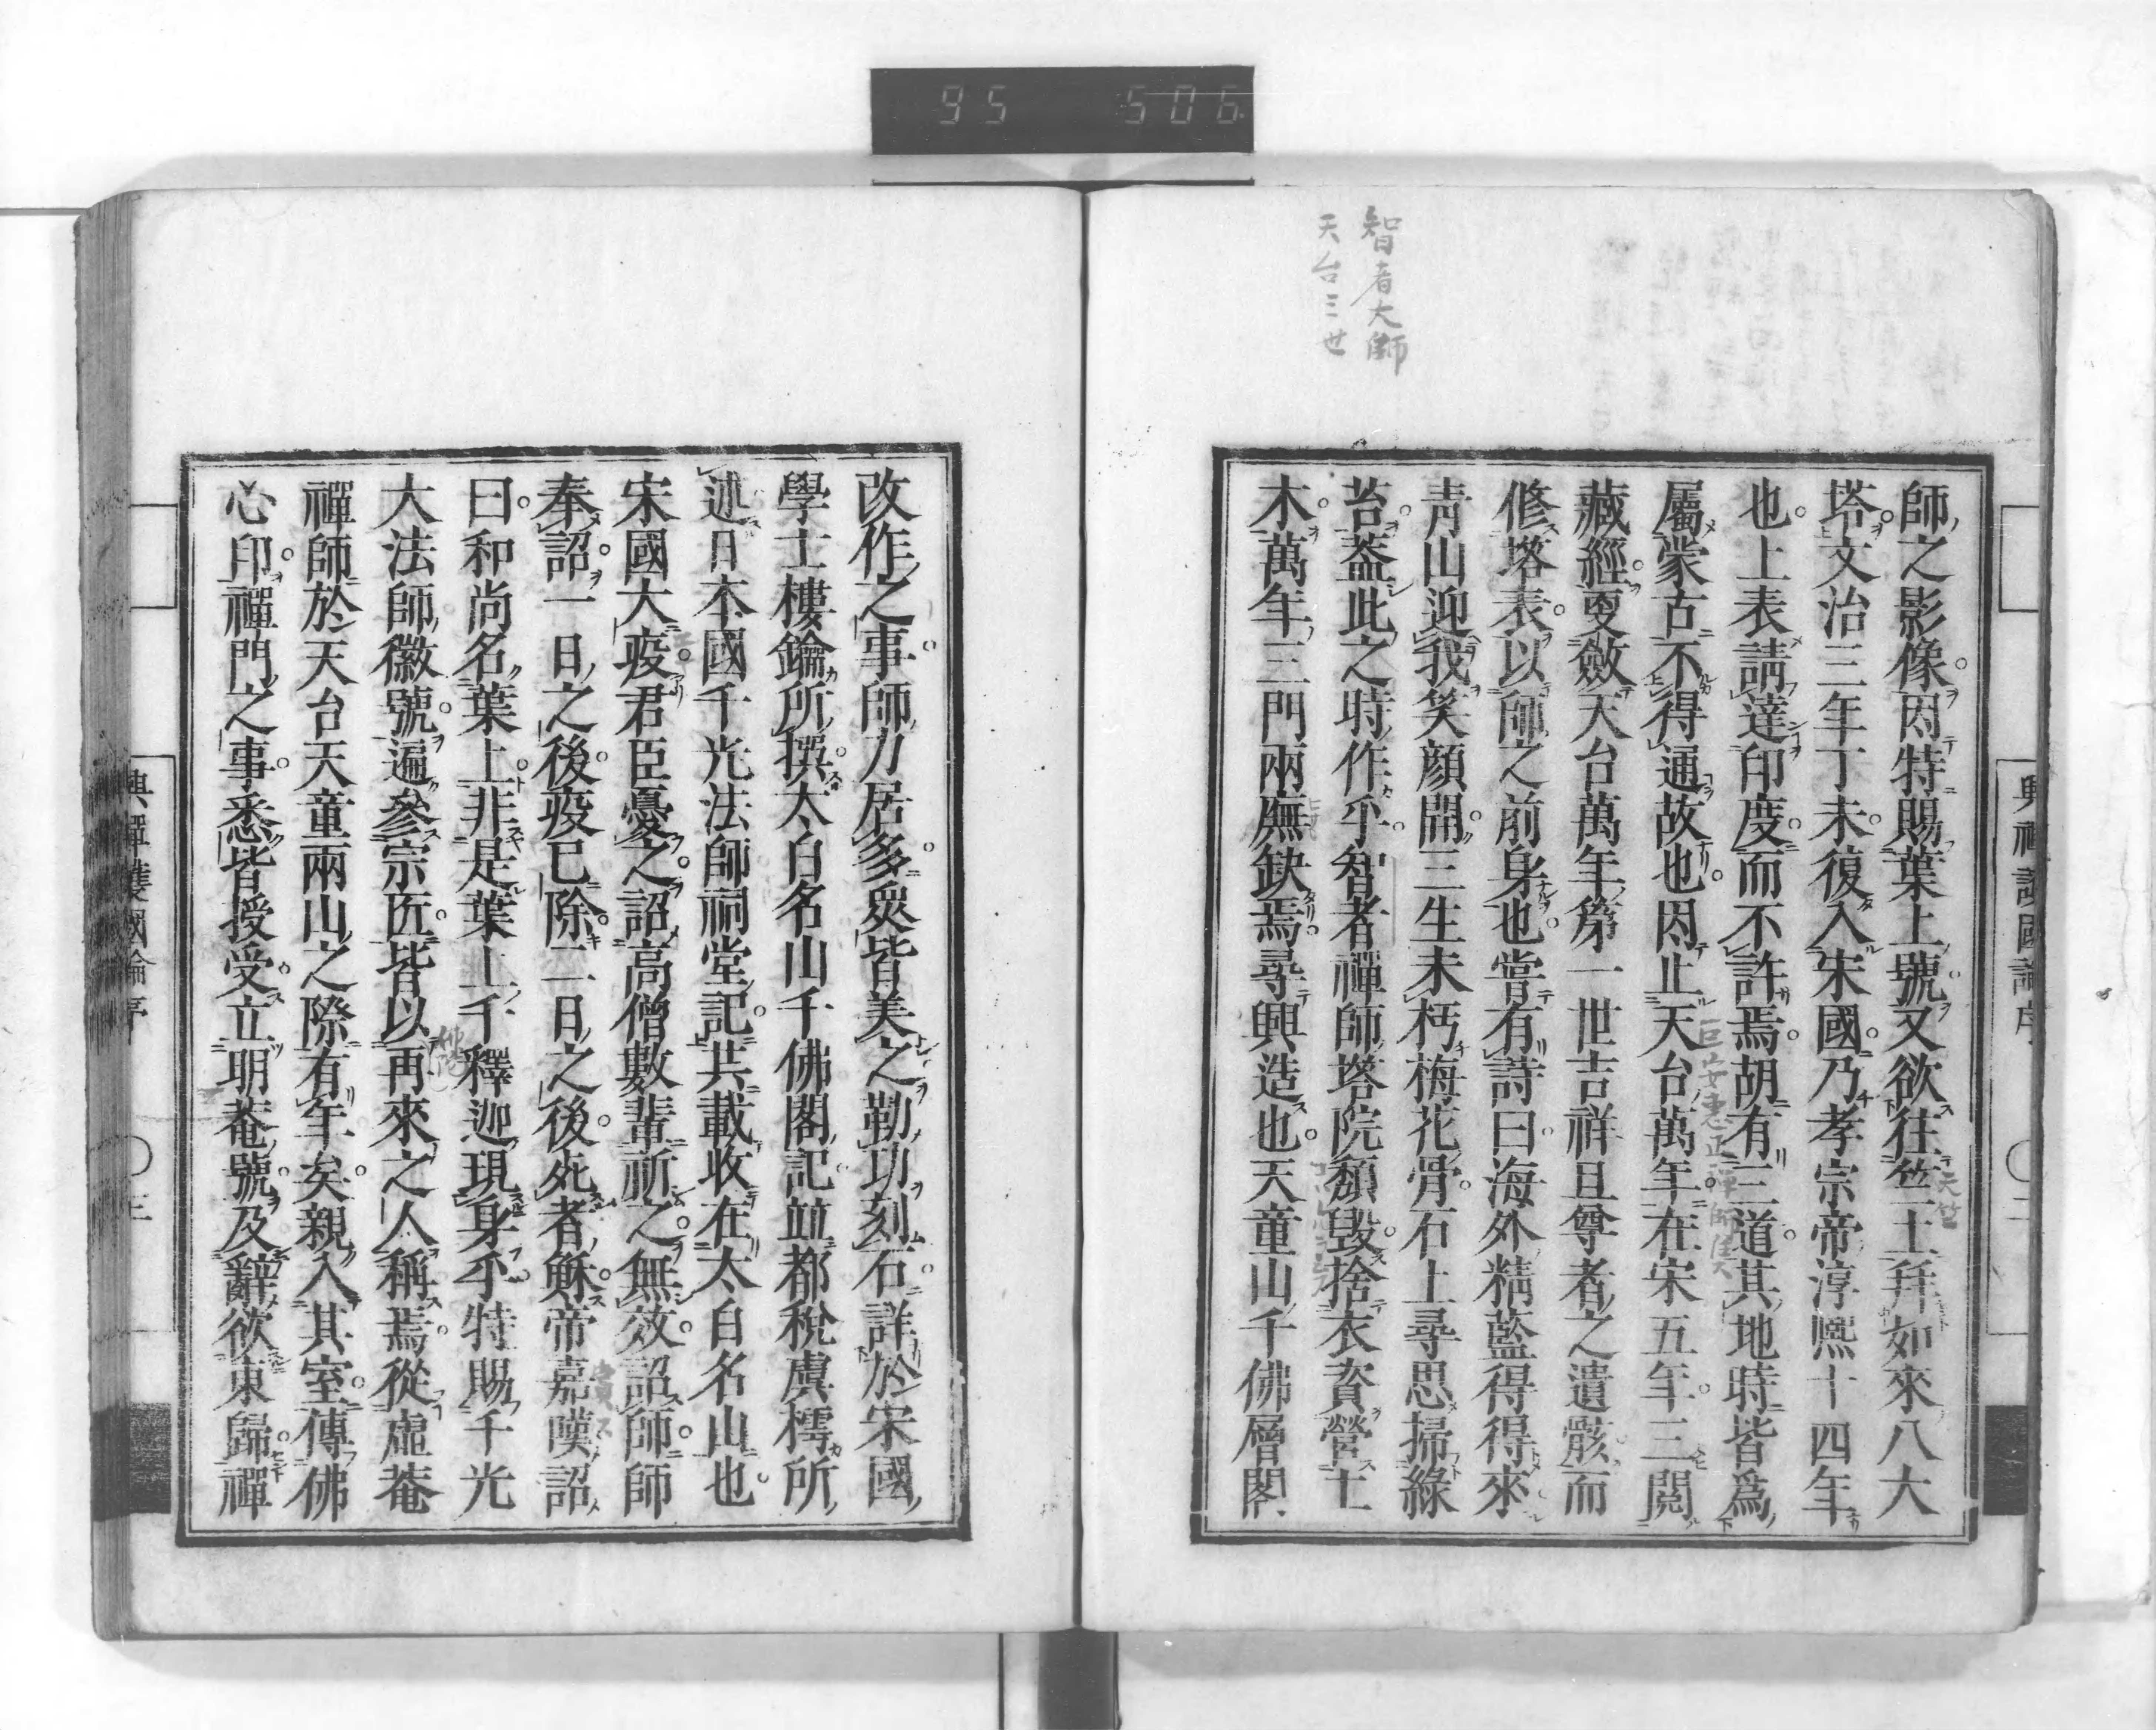 95 506
智者大師
天台三世
師之影像因特賜葉上號又欲往竺土拜如來八大
塔文治三年丁未復入宋國乃孝宗帝淳熙十四年
也上表請達印度而不許焉胡有三道其地時皆爲
屬蒙古不得通故也因止天台萬年在宋五年三閱
藏經更斂天台萬年第一世吉祥且尊者之遺骸而
修塔表以師之前身也嘗有詩曰海外精藍得得來
靑山迎我笑顔開三生未朽梅花骨石上尋思掃綠
苔蓋此之時作乎智者禪師塔院頽毀捨衣資營土
木萬年三門兩廡缺焉尋興造也天童山千佛層閣
天竺
興禪護國論序
〇二
改作之事師力居多衆皆美之勒功刻石詳於宋國
學士樓鑰所撰太白名山千佛閣記竝都稅虞樗所
述日本國千光法師祠堂記共載收在太白名山也
宋國大疫君臣憂之詔高僧數輩祈之無效詔師師
奉詔一日之後疫已除二日之後死者穌帝嘉嘆詔
曰和尚名葉上非是葉上千釋迦現身乎特賜千光
大法師徽號遍參宗匠皆以再來之人稱焉從虛菴
禪師於天台天童兩山之際有年矣親入其室傳佛
心印禪門之事悉皆授受立明菴號及辭欲東歸禪
興禪護國論序
〇三